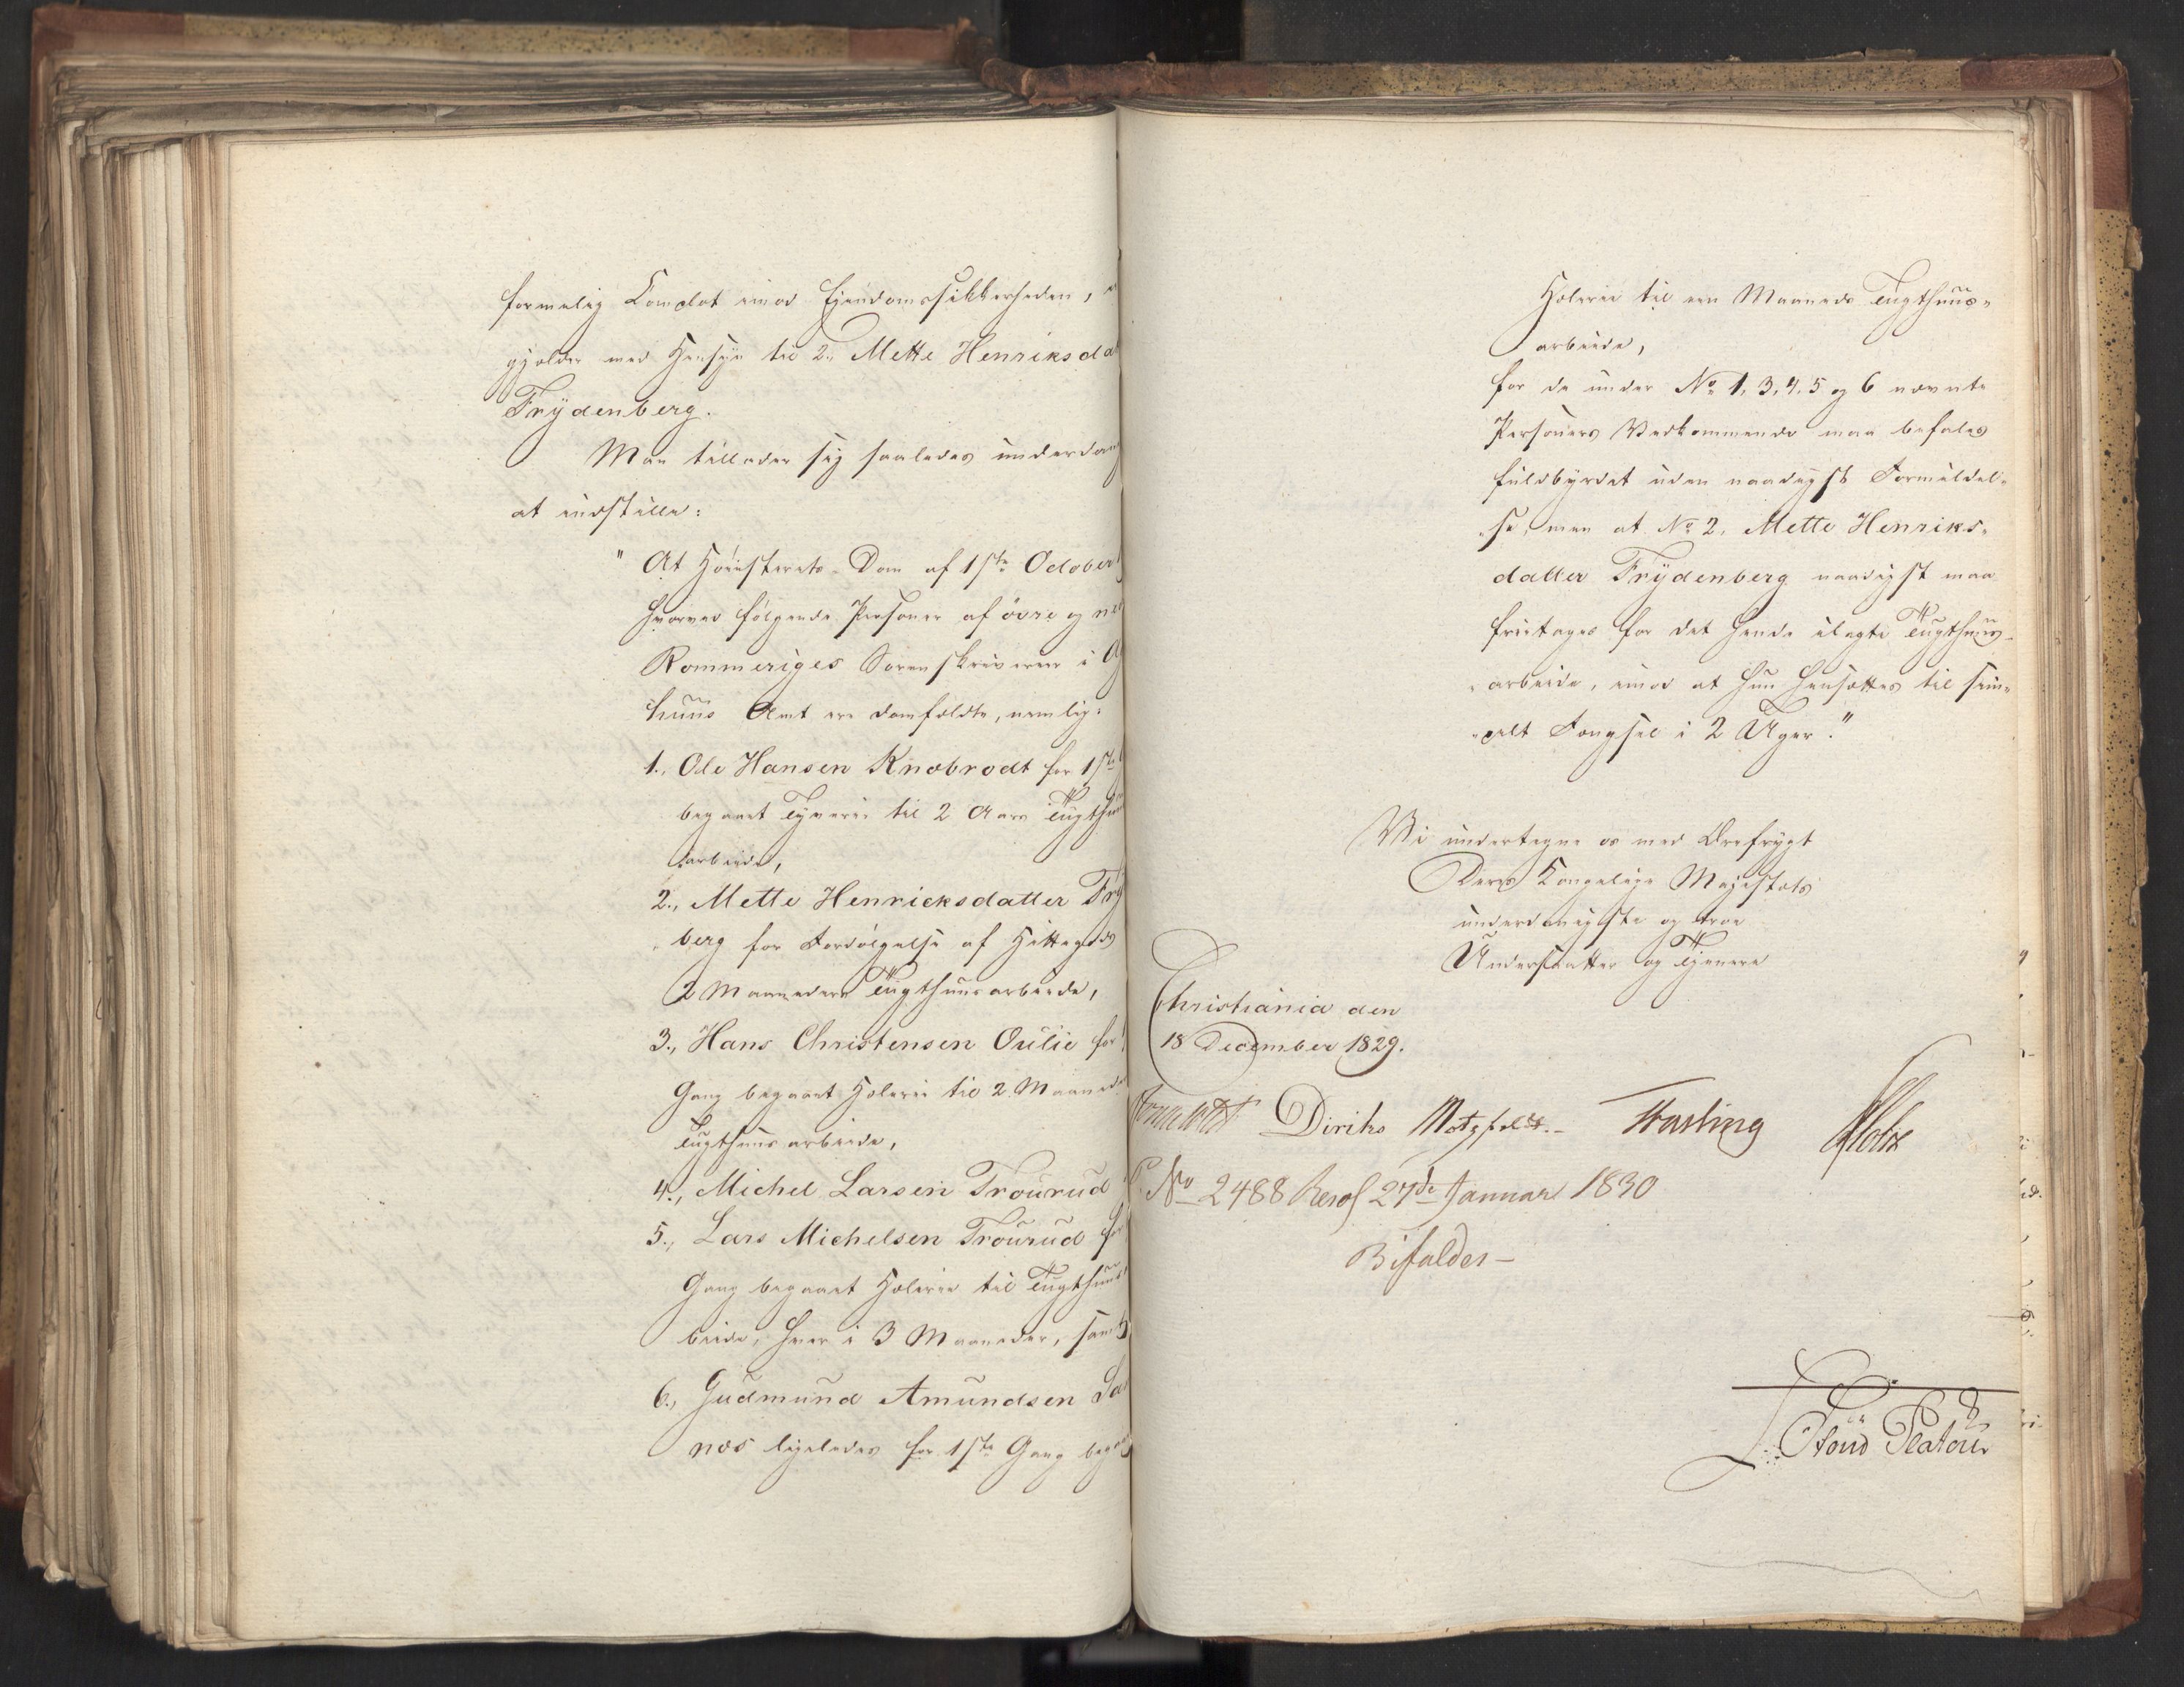 formelig Lovdet imod Ejendomssikkerheden,
gjælder med Hensyn til 2. Mette Henriksda
Frydenberg.
Man tillader sig saaledes underdan
at indstille:
"At Høiesterets Dom af 1ste October
hvorved følgende Personer af övre og ne
Rommeriges Sorenskriverier i A
huus Amt ere domfældte, nemlig:
1., Ole Hansen Knæbrodt for 1ste
begaaet Tyverie til 2 Aars Tugthuus
arbeide,
2., Mette Henricksdatter Fry
berg for Fordølgelse af Hittegods
2 Maaneders Tugthuusarbeide,
3., Hans Christensen Oulie for
Gang begaaet Hæleri til 2 Maaneder
Tugthuusarbeide,
4., Michel Larsen Trourud
5., Lars Michelsen Trourud for
Gang begaaet Hæleri til Tugthuus
beide, hver i 3 Maaneder, samt
6., Gudmund Amundsen Da
næs ligeledes for 1ste Gang bega
Hæleri til een Maaneds Tugthuus-
arbeide,
for de under No 1, 3, 4, 5 og 6 nævnte
Personers Vedkommende maa befales
fuldbyrdet uden naadigst Formildel-
se, men at No 2, Mette Henriks-
datter Frydenberg naadigst maa
fritages for det hende ilagte Tugthuus-
arbeide, imod at hun hensættes til sim-
pelt Fængsel i 2 Uger."
Vi undertegne os med Ærefrygt
Deres Kongelige Majestæts
underdanigste og troe
Undersaatter og Tjenere
Christiania den
18 December 1829.
Diriks Motzfeldt. Fasting Holst
P. No 2488 Resol 27de Januar 1830
Bifaldes